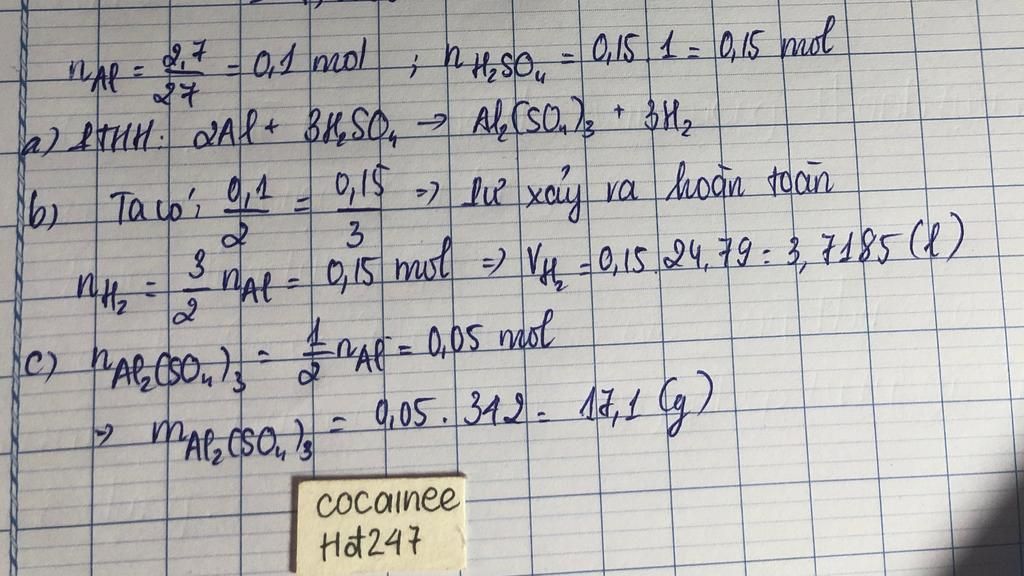 nAl = 2,7/27 = 0,1 mol ; nH₂SO₄ = 0,15.1 = 0,15 mol
a) PTHH: 2Al + 3H₂SO₄ → Al₂(SO₄)₃ + 3H₂
b) Ta có: 0,1/2 = 0,15/3 ⇒ pư xảy ra hoàn toàn
nH₂ = 3/2 nAl = 0,15 mol ⇒ VH₂ = 0,15.24,79 = 3,7185 (l)
c) nAl₂(SO₄)₃ = 1/2 nAl = 0,05 mol
⇒ mAl₂(SO₄)₃ = 0,05 . 342 = 17,1 (g)
cocainee
Hot247